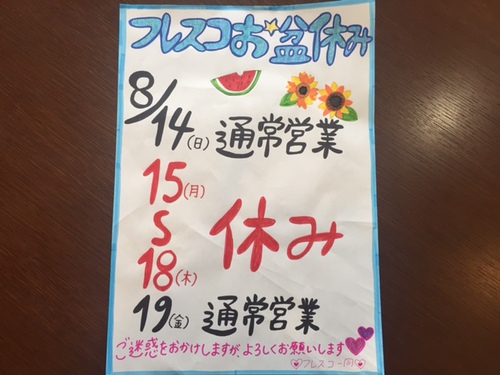 フレスコお盆休み
8/14(日) 通常営業
15(月)
S 休み
18(木)
19(金) 通常営業
ご迷惑をおかけしますが、よろしくお願いします
♡フレスコ一同♡